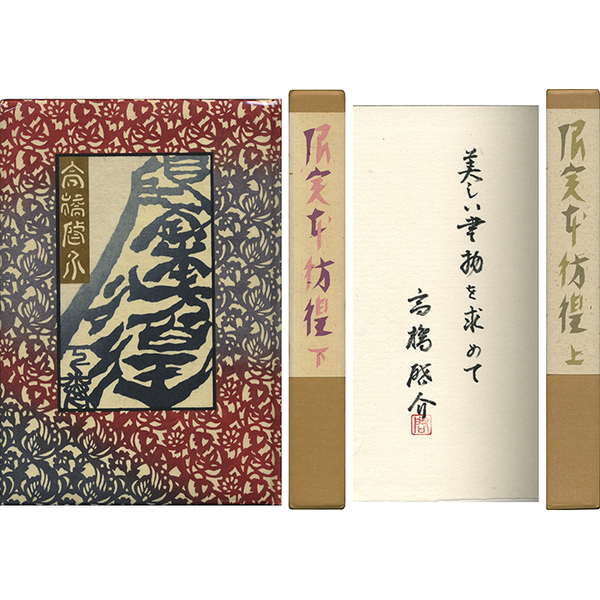 高橋啓介
限定本彷徨
限定本彷徨 下
美しい書物を求めて
高橋啓介
限定本彷徨 上